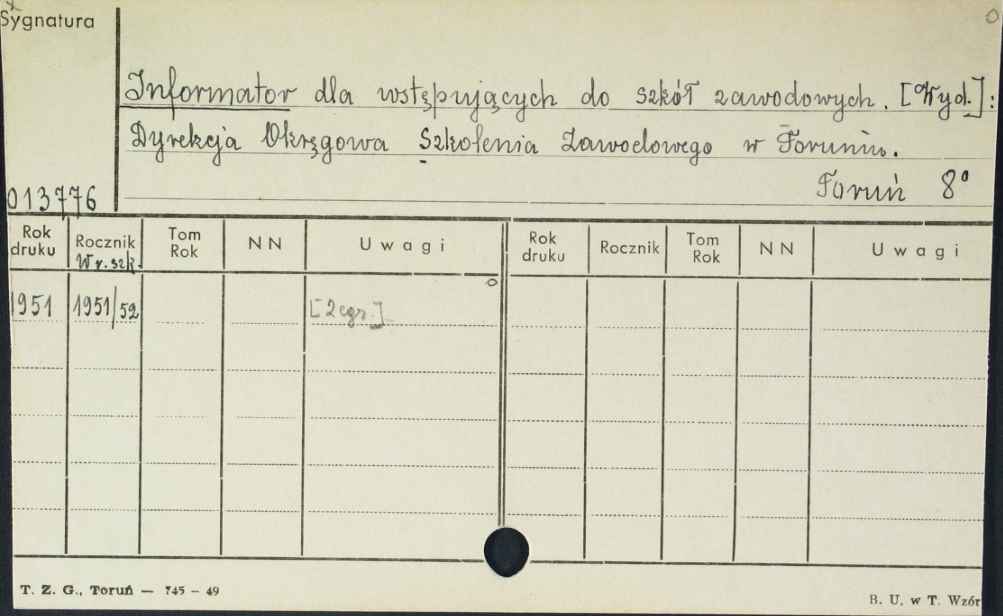 Sygnatura
Informator dla wstępujących do szkół zawodowych. [Wyd.]:
Dyrekcja Okręgowa Szkolenia Zawodowego w Toruniu.
Toruń 8°
013776
Rok druku Rocznik Tom Rok NN Uwagi Rok druku Rocznik Tom Rok NN Uwagi
W r. szk.
1951 1951/52 [2 egz.]
T. Z. G., Toruń — 745 – 49
B. U. w T. Wzór